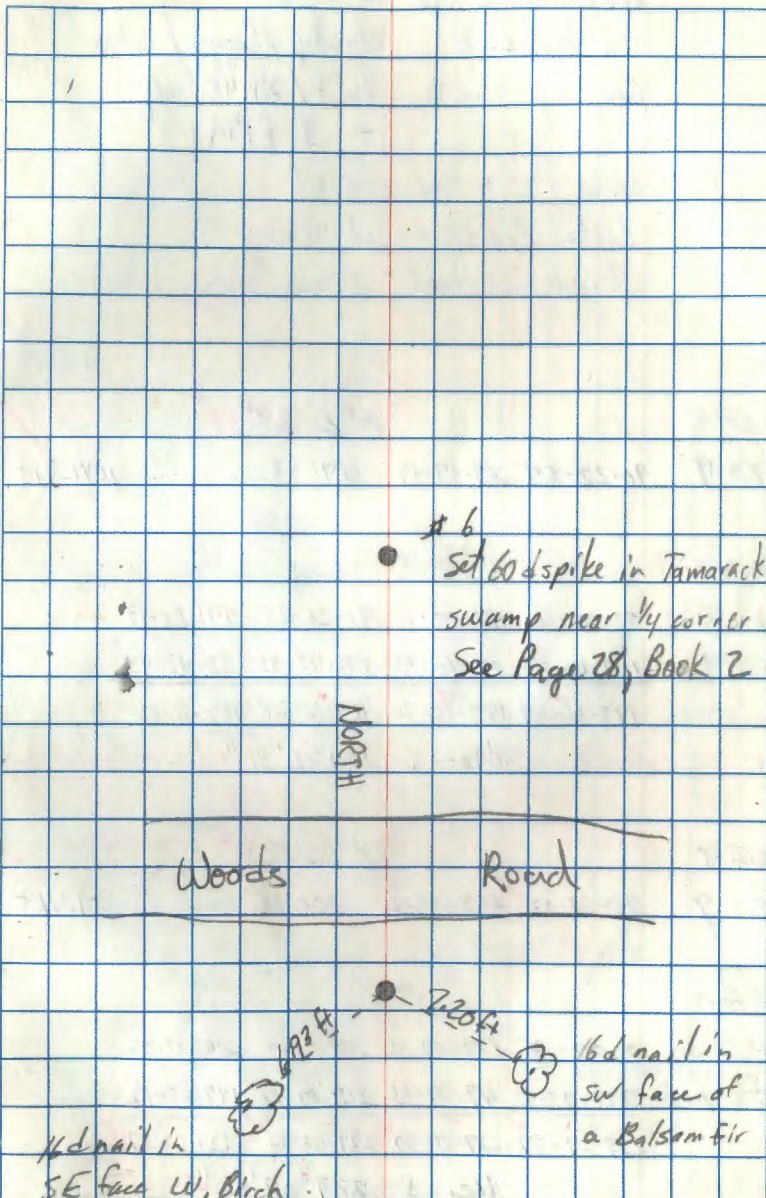 # 6
Set 60 d spike in Tamarack
swamp near 1/4 corner
See Page 28, Book 2
NORTH
Woods Road
7.20 ft
16 d nail in
SW face of
a Balsam Fir
16 d nail in
SE face W. Birch